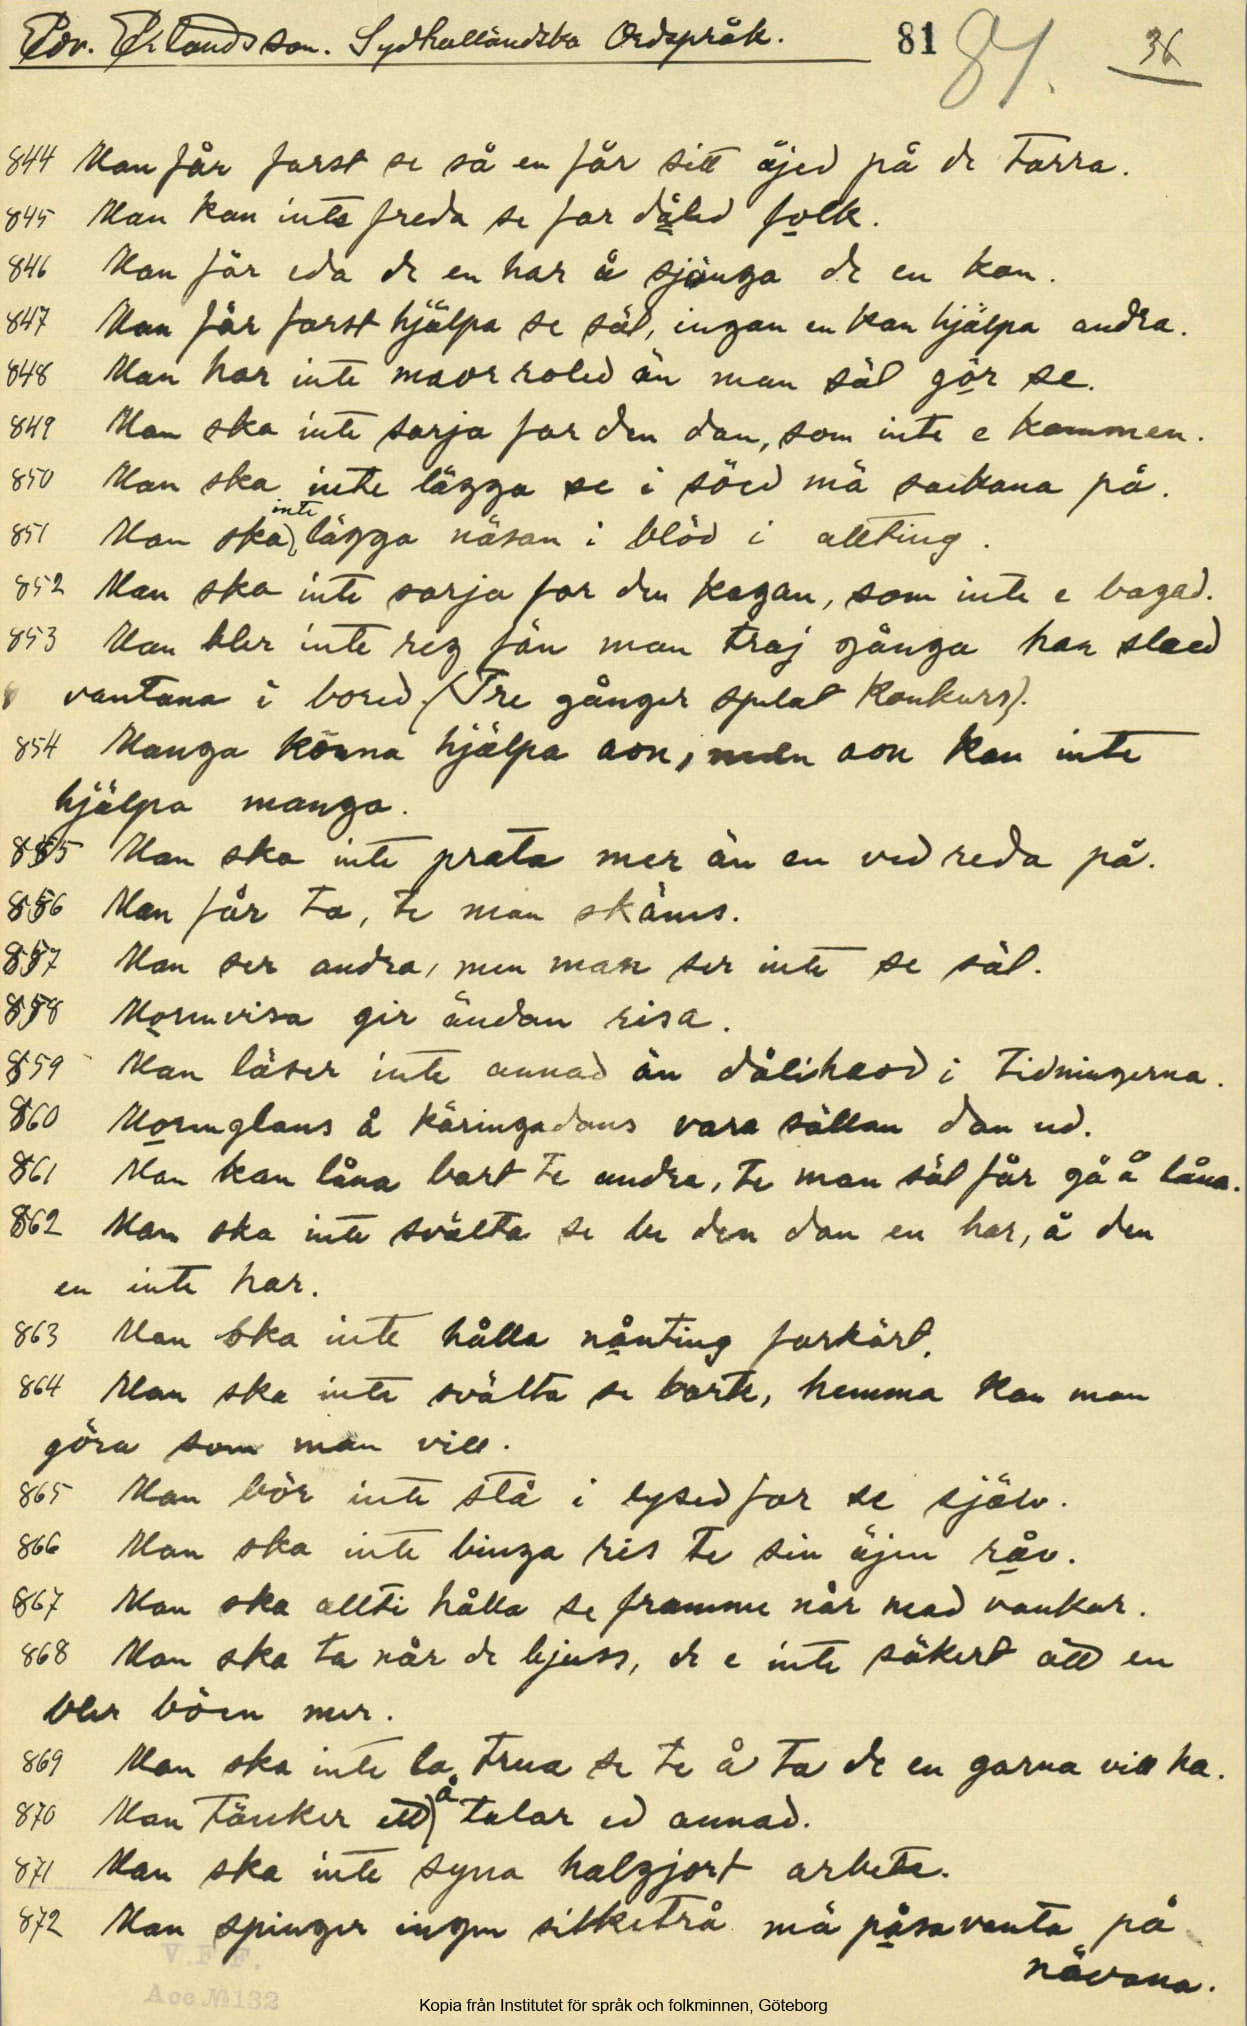 Edv. Erlandsson. Sydhalländska Ordspråk. 81 81. 36
844 Man får farst se så en får sitt äjed på de tarra.
845 Man kan inte freda se far dåled folk.
846 Man får eda de en har å sjånga de en kan.
847 Man får farst hjälpa se säl, ingan en kan hjälpa andra.
848 Man har inte maor roled än man säl gör se.
849 Man ska inte sarja far den dan, som inte e kammen.
850 Man ska inte lägga se i söed mä sockana på.
851 Man ska inte lägga näsan i blöd i allting.
852 Man ska inte sarja far den kagan, som inte e bagad.
853 Man bler inte rig fån man traj gånga har slaed
vantana i bored. (Tre gånger spelat konkurs).
854 Manga könna hjälpa aon, men aon kan inte
hjälpa manga.
855 Man ska inte prata mer än en ved reda på.
856 Man får ta, te man skäms.
857 Man ser andra, men man ser inte se säl.
858 Mornvisa gir ändan risa.
859 Man läser inte annad än dålihaod i tidningerna.
860 Mornglans å käringadans vara sällan dan ud.
861 Man kan låna bart te andra, te man säl får gå å låna.
862 Man ska inte svälta se be den dan en har, å den
en inte har.
863 Man ska inte hålla nånting farkärt.
864 Man ska inte svälta se barte, hemma kan man
göra som man vill.
865 Man bör inte stå i lysed far se själv.
866 Man ska inte binga ris te sin äjen råv.
867 Man ska allti hålla se framme når mad vankar.
868 Man ska ta når de bjuss, de e inte säkert att en
bler böen mer.
869 Man ska inte la trua se te å ta de en garna vill ha.
870 Man tänker ett å talar ed annad.
871 Man ska inte syna halgjort arbete.
872 Man spinger ingen silketrå mä påsavanta på
nävana.
V.F.F.
Acc № 132
Kopia från Institutet för språk och folkminnen, Göteborg